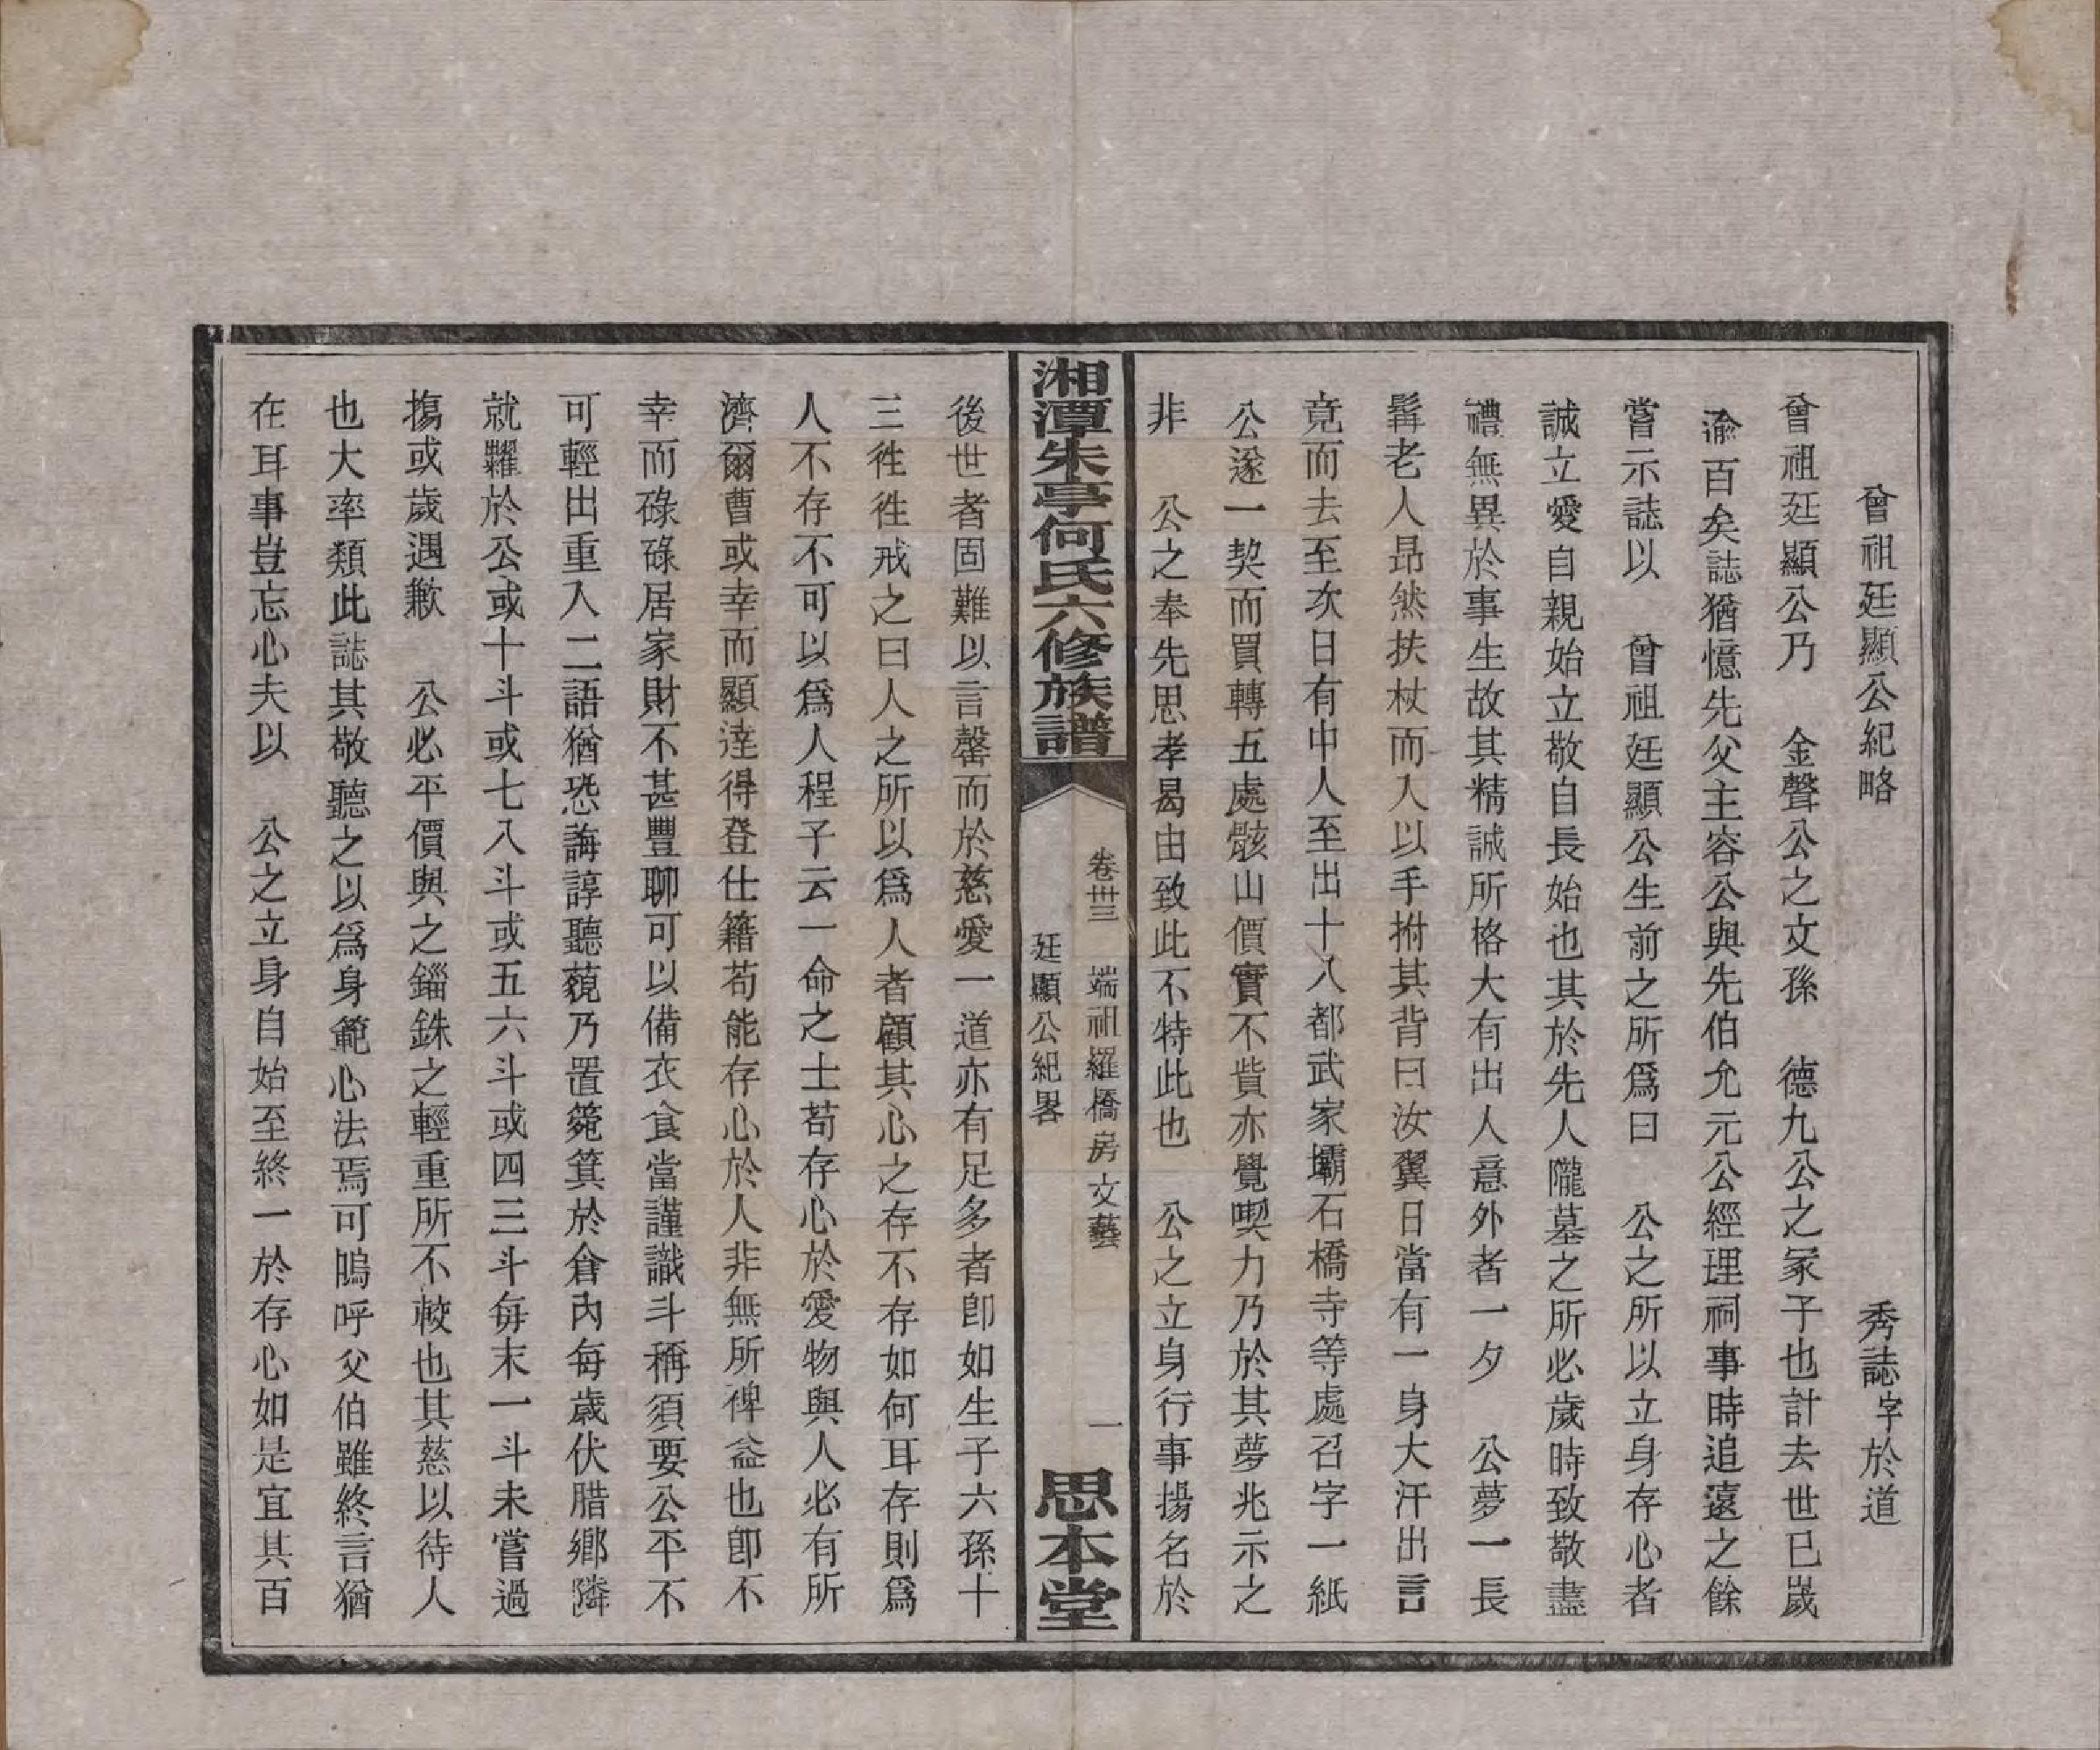 曾祖廷顯公紀略　秀誌字於道
曾祖廷顯公乃　金聲公之文孫　德九公之冢子也計去世已嵗
渝百矣誌猶憶先父主容公與先伯允元公經理祠事時追遠之餘
嘗示誌以　曾祖廷顯公生前之所爲曰　公之所以立身存心者
誠立愛自親始立敬自長始也其於先人隴墓之所必歲時致敬盡
禮無異於事生故其精誠所格大有出人意外者一夕　公夢一長
髯老人昂然扶杖而入以手拊其背曰汝翼日當有一身大汗出言
竟而去至次日有中人至出十八都武家壩石橋寺等處召字一紙
公遂一契而買轉五處骸山價實不貲亦覺喫力乃於其夢兆示之
非　公之奉先思孝曷由致此不特此也　公之立身行事揚名於
湘潭朱亭何氏六修族譜
卷卅三　端祖羅橋房文藝
廷顯公紀畧
一
思本堂
後世者固難以言罄而於慈愛一道亦有足多者卽如生子六孫十
三徃徃戒之曰人之所以爲人者顧其心之存不存如何耳存則爲
人不存不可以爲人程子云一命之士苟存心於愛物與人必有所
濟爾曹或幸而顯達得登仕籍苟能存心於人非無所裨益也卽不
幸而碌碌居家財不甚豐聊可以備衣食當謹識斗稱須要公平不
可輕出重入二語猶恐誨諄聽藐乃置簸箕於倉內每歲伏腊鄉隣
就糶於公或十斗或七八斗或五六斗或四三斗每末一斗未嘗過
搊或歲遇歉　公必平價與之錙銖之輕重所不較也其慈以待人
也大率類此誌其敬聽之以爲身範心法焉可嗚呼父伯雖終言猶
在耳事豈忘心夫以　公之立身自始至終一於存心如是宜其百